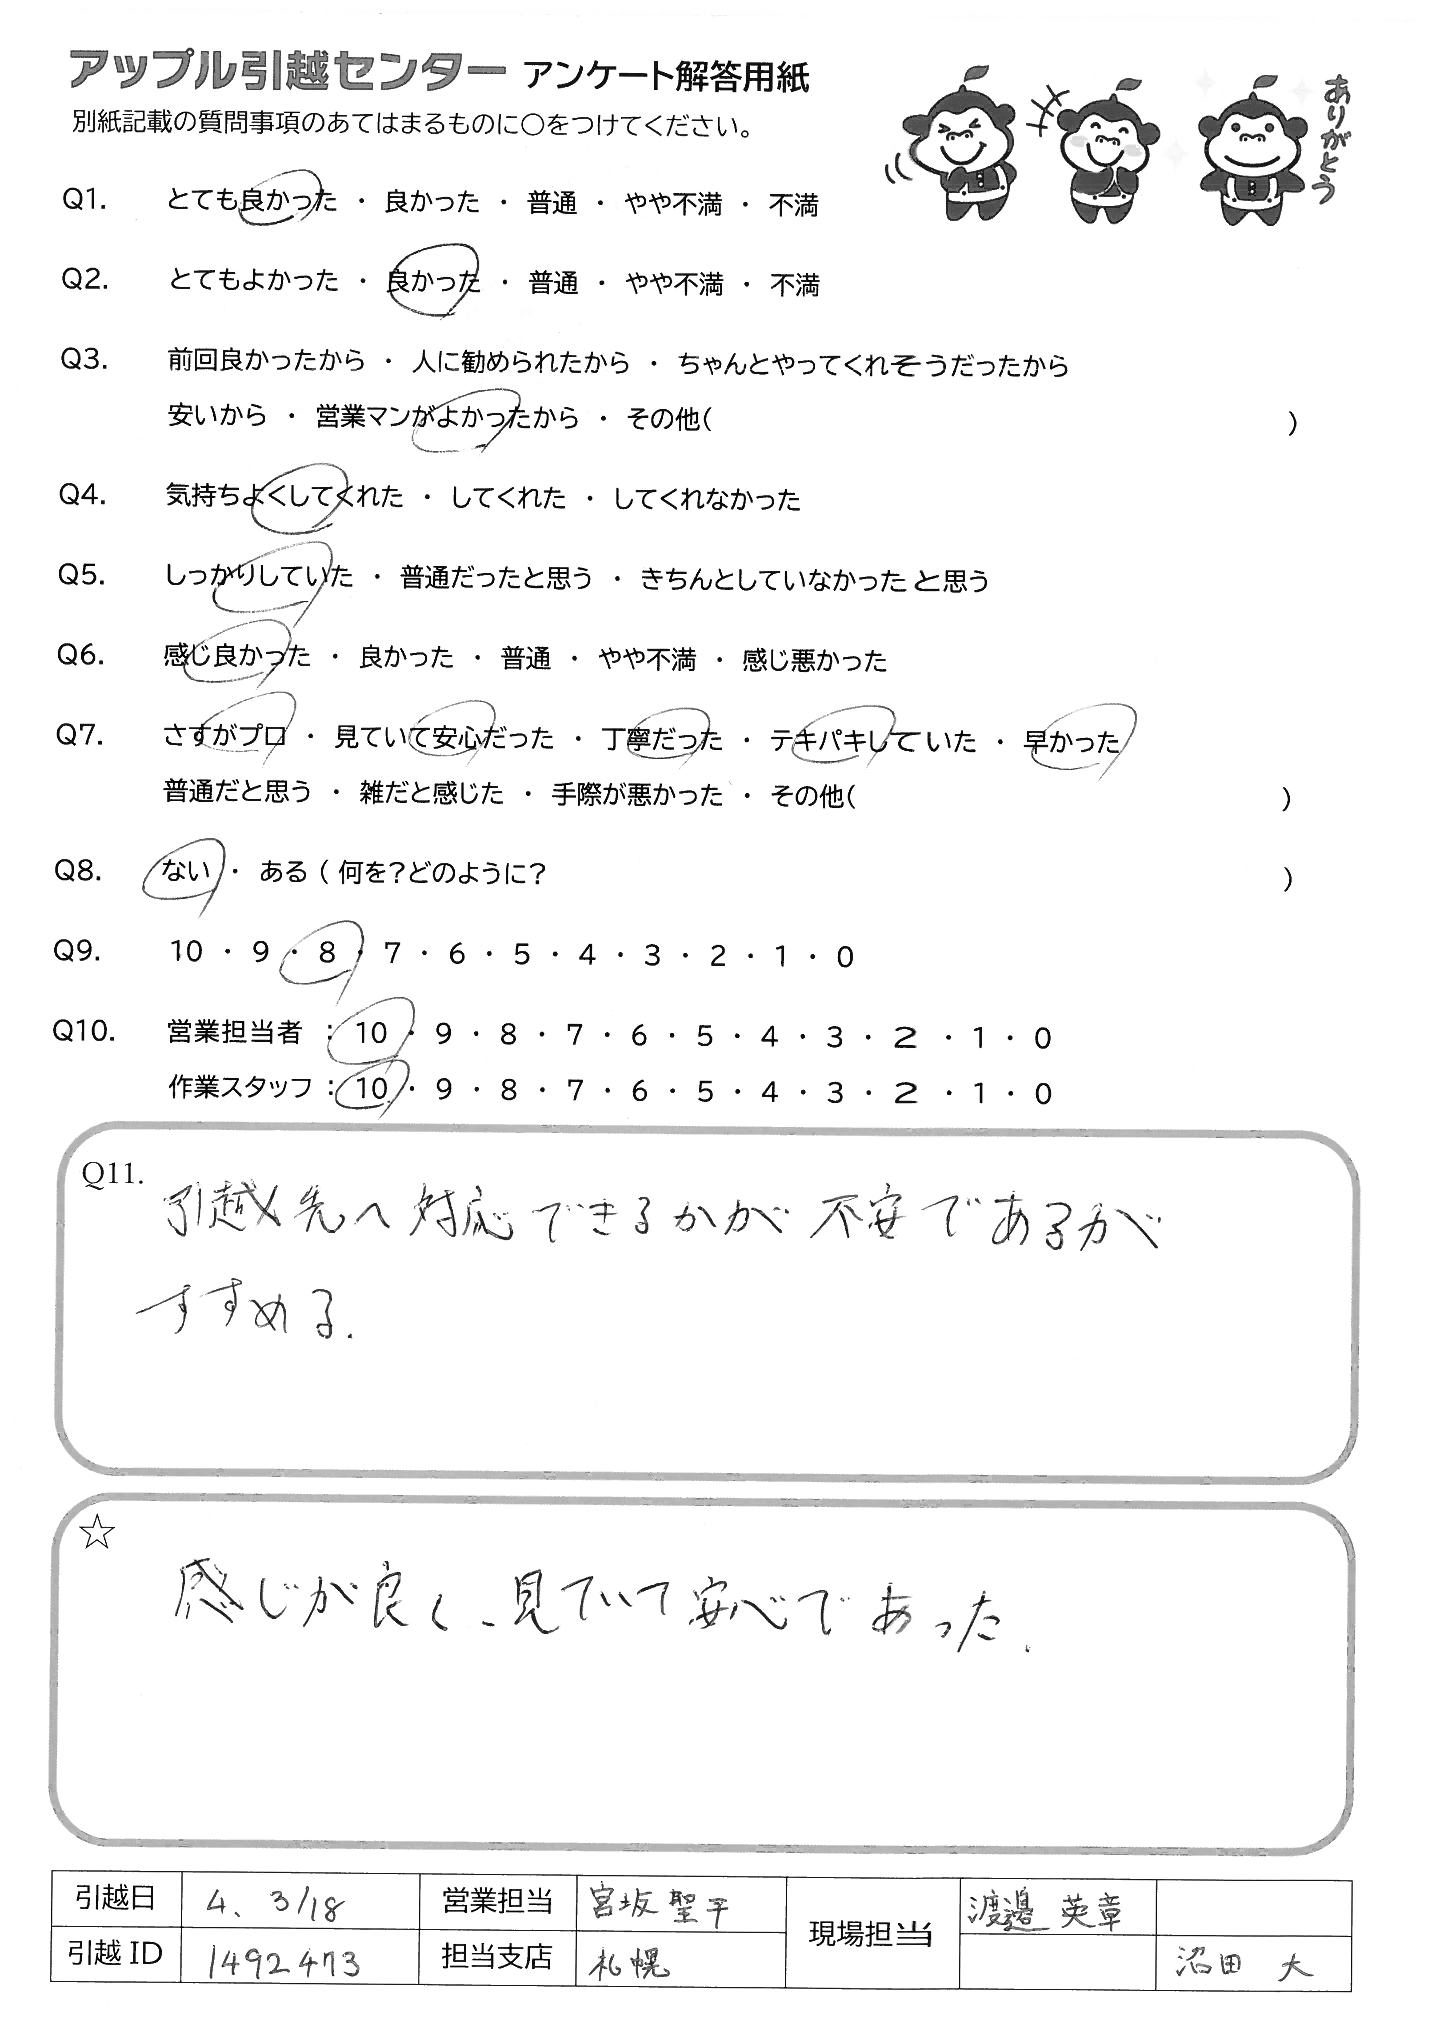 アップル引越センター アンケート解答用紙
別紙記載の質問事項のあてはまるものに○をつけてください。
ありがとう
Q1. とても良かった ・ 良かった ・ 普通 ・ やや不満 ・ 不満
Q2. とてもよかった ・ 良かった ・ 普通 ・ やや不満 ・ 不満
Q3. 前回良かったから ・ 人に勧められたから ・ ちゃんとやってくれそうだったから
安いから ・ 営業マンがよかったから ・ その他( )
Q4. 気持ちよくしてくれた ・ してくれた ・ してくれなかった
Q5. しっかりしていた ・ 普通だったと思う ・ きちんとしていなかったと思う
Q6. 感じ良かった ・ 良かった ・ 普通 ・ やや不満 ・ 感じ悪かった
Q7. さすがプロ ・ 見ていて安心だった ・ 丁寧だった ・ テキパキしていた ・ 早かった
普通だと思う ・ 雑だと感じた ・ 手際が悪かった ・ その他( )
Q8. ない ・ ある ( 何を?どのように? )
Q9. 10 ・ 9 ・ 8 ・ 7 ・ 6 ・ 5 ・ 4 ・ 3 ・ 2 ・ 1 ・ 0
Q10. 営業担当者 : 10 ・ 9 ・ 8 ・ 7 ・ 6 ・ 5 ・ 4 ・ 3 ・ 2 ・ 1 ・ 0
作業スタッフ : 10 ・ 9 ・ 8 ・ 7 ・ 6 ・ 5 ・ 4 ・ 3 ・ 2 ・ 1 ・ 0
Q11.
引越し先へ対応できるかが不安であるが
すすめる.
☆
感じが良く、見ていて安心であった.
引越日 4. 3/18 営業担当 宮坂聖平 現場担当 渡邉 英章
引越ID 1492473 担当支店 札幌 沼田 大